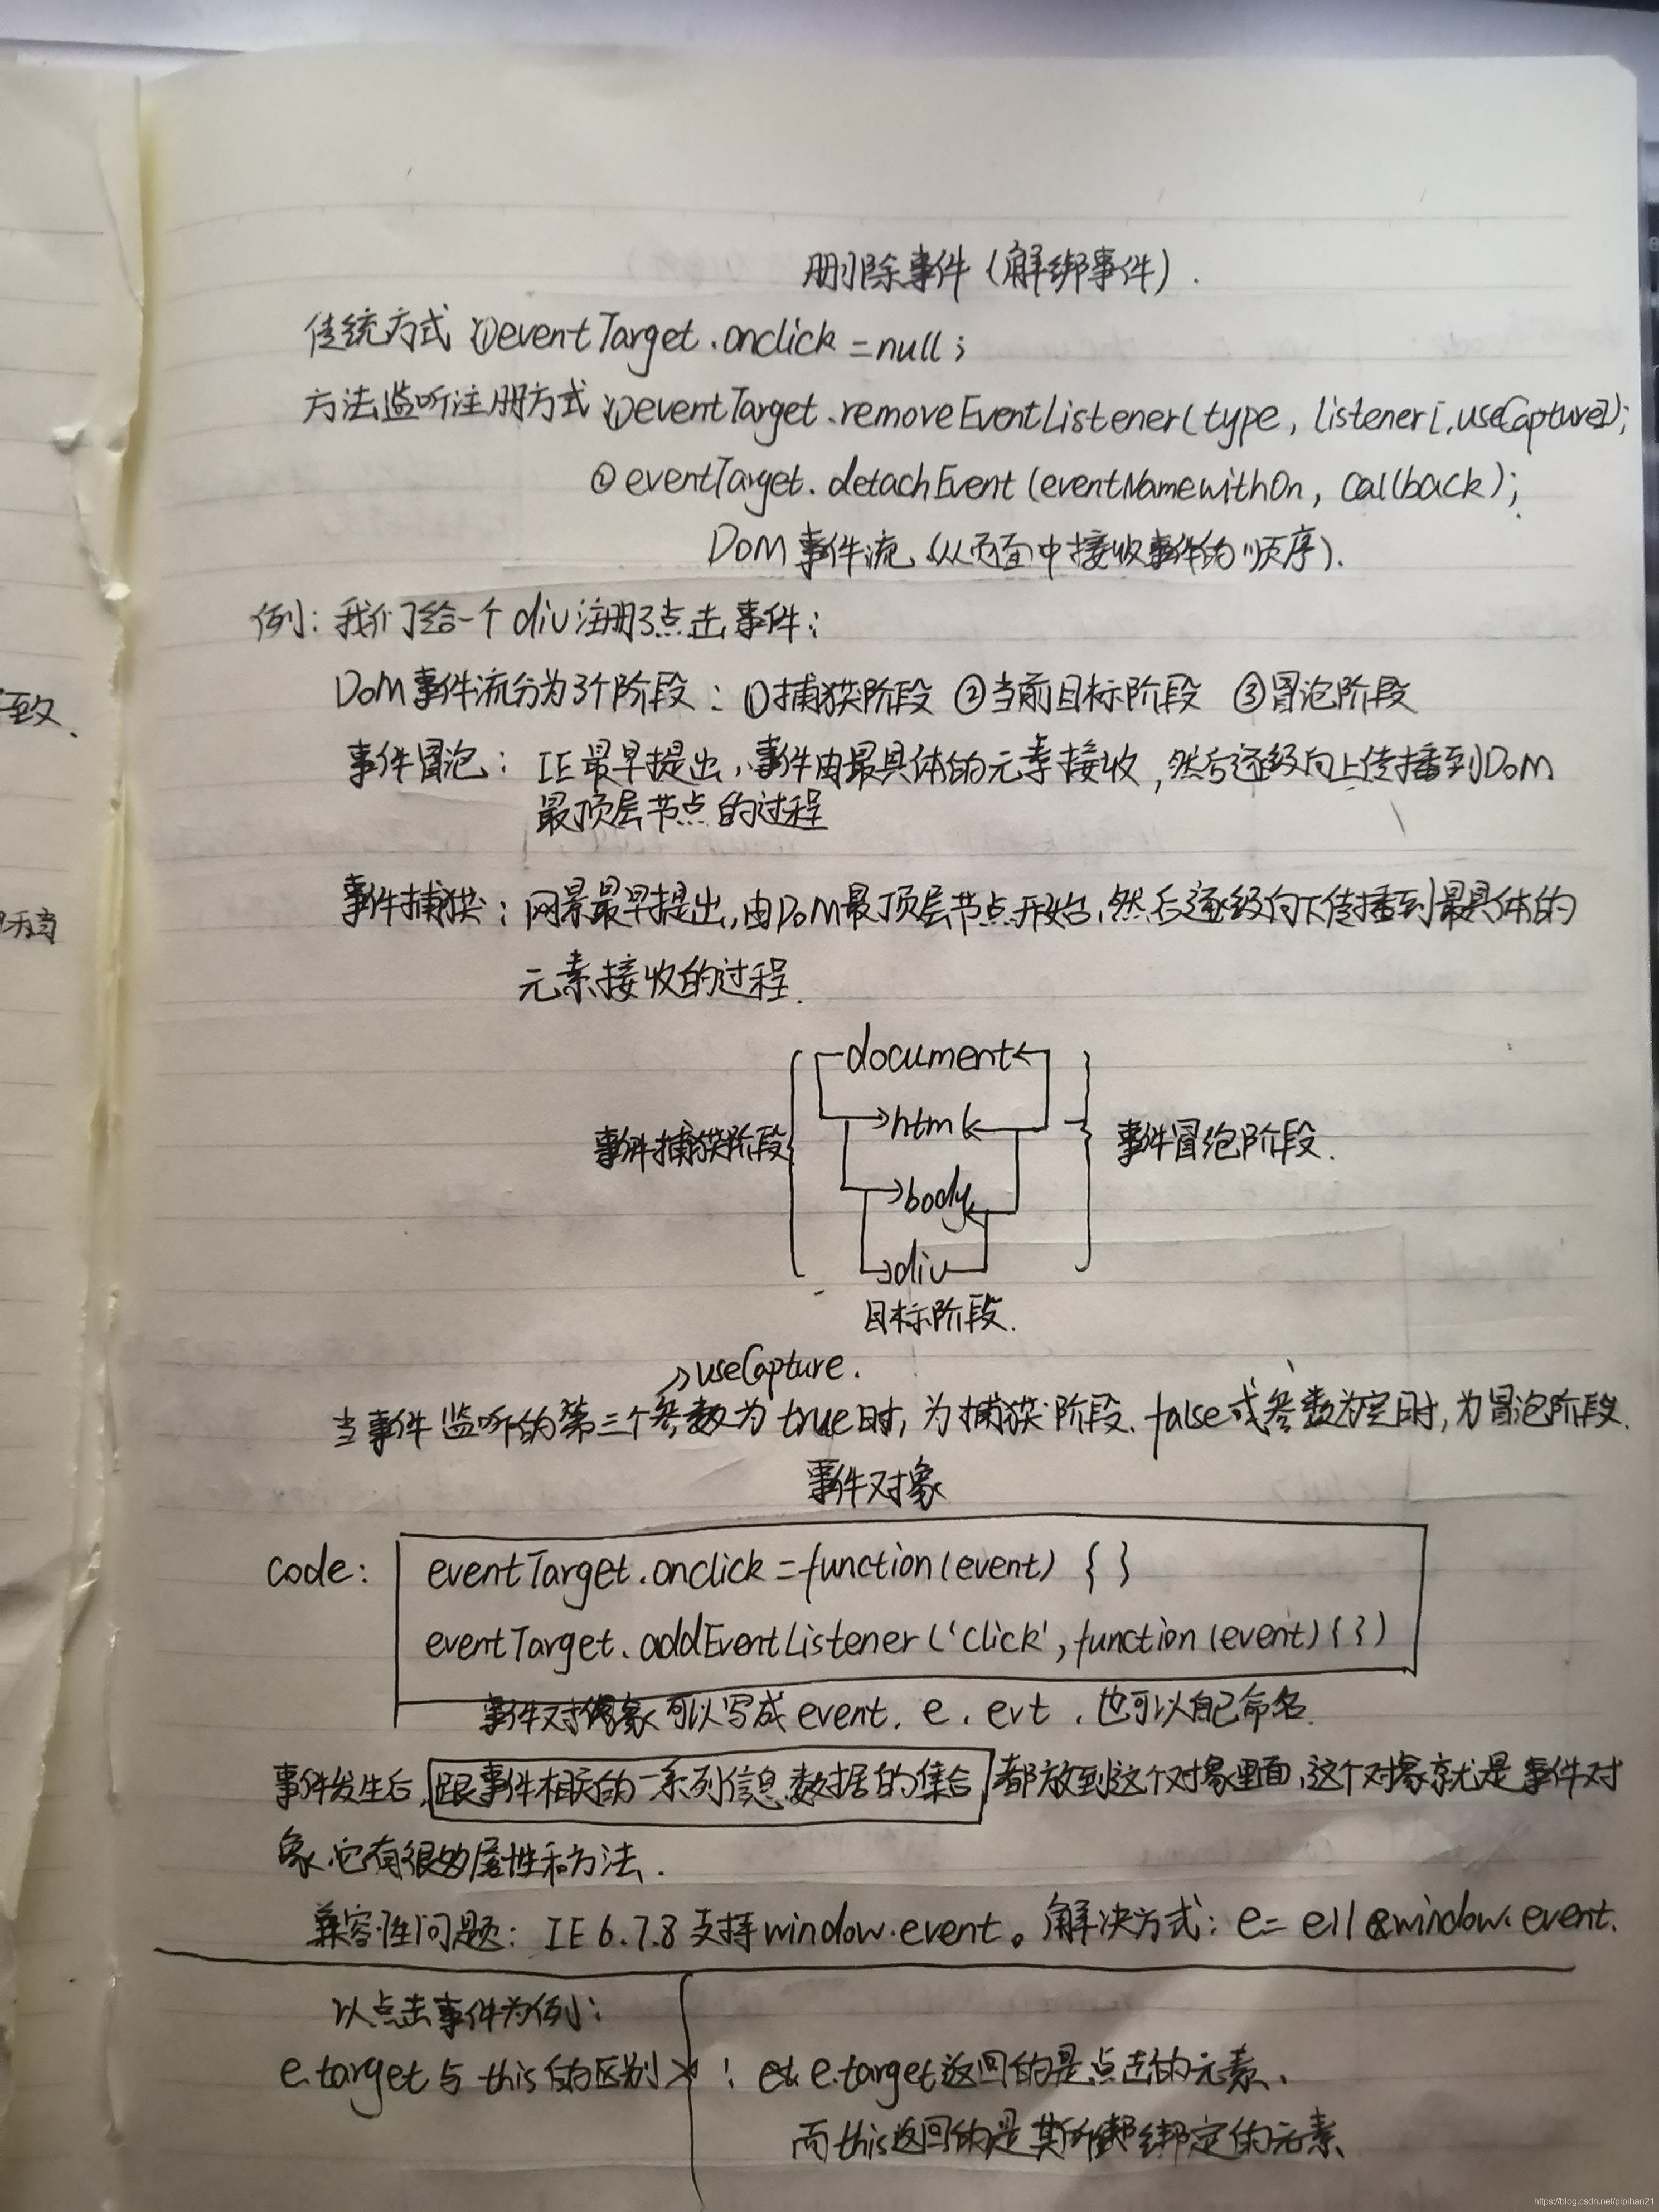 删除事件（解绑事件）.
传统方式 ①eventTarget.onclick=null;
方法监听注册方式 ①eventTarget.removeEventListener(type, listener[,useCapture]);
② eventTarget. detachEvent (eventNamewithOn, callback);
DOM 事件流（从页面中接收事件的顺序）.
例: 我们给一个 div 注册了点击事件:
致、
DOM事件流分为3个阶段: ①捕获阶段 ②当前目标阶段 ③冒泡阶段
事件冒泡: IE最早提出, 事件由最具体的元素接收, 然后逐级向上传播到DOM
最顶层节点的过程
事件捕获: 网景最早提出, 由DOM最顶层节点开始, 然后逐级向下传播到最具体的
元素接收的过程.
document
html
事件捕获阶段
事件冒泡阶段.
body
div
目标阶段.
useCapture.
当事件监听的第三个参数为true时, 为捕获阶段. false或参数为空时, 为冒泡阶段.
事件对象
code: eventTarget.onclick=function(event) { }
eventTarget.addEventListener('click', function(event){ })
事件对象可以写成event. e. evt. 也可以自己命名.
事件发生后, 跟事件相关的一系列信息数据的集合 都放到这个对象里面, 这个对象就是事件对
象, 它有很多属性和方法.
兼容性问题: IE 6.7.8 支持window.event。解决方式: e= e||window.event.
以点击事件为例:
e.target与this的区别: e.target返回的是点击的元素.
而this返回的是其所绑定的元素
https://blog.csdn.net/pipihan21